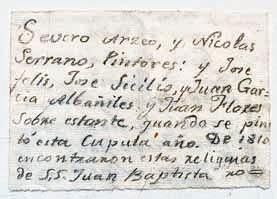 Severo Arzeo, y Nicolas
Serrano, Pintores: y Jose
felis, Jose Sicilio, y Juan Gar-
cia Albañiles y Juan Flores
Sobre estante, quando se pin
tó esta Cupula año. De 1810
encontraron estas religuias
de S.S. Juan Baptista